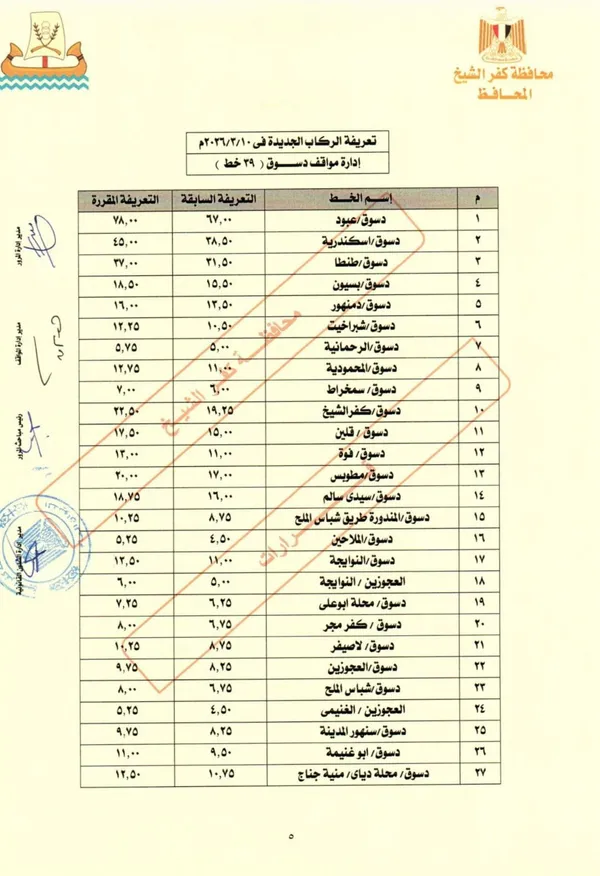 محافظة كفر الشيخ
المحافظ
تعريفة الركاب الجديدة فى ٢٠٢٦/٣/١٠م
إدارة مواقف دسوق ( ٣٩ خط )
م إسم الخط التعريفة السابقة التعريفة المقررة
١ دسوق/عبود ٦٧,٠٠ ٧٨,٠٠
٢ دسوق/اسكندرية ٣٨,٥٠ ٤٥,٠٠
٣ دسوق/طنطا ٣١,٥٠ ٣٧,٠٠
٤ دسوق/بسيون ١٥,٥٠ ١٨,٥٠
٥ دسوق/دمنهور ١٣,٥٠ ١٦,٠٠
٦ دسوق/شبراخيت ١٠,٥٠ ١٢,٢٥
٧ دسوق/الرحمانية ٥,٠٠ ٥,٧٥
٨ دسوق/المحمودية ١١,٠٠ ١٢,٧٥
٩ دسوق/ سمخراط ٦,٠٠ ٧,٠٠
١٠ دسوق/كفرالشيخ ١٩,٢٥ ٢٢,٥٠
١١ دسوق/ قلين ١٥,٠٠ ١٧,٥٠
١٢ دسوق/ فوة ١١,٠٠ ١٣,٠٠
١٣ دسوق/مطوبس ١٧,٠٠ ٢٠,٠٠
١٤ دسوق/سيدى سالم ١٦,٠٠ ١٨,٧٥
١٥ دسوق/المندورة طريق شباس الملح ٨,٧٥ ١٠,٢٥
١٦ دسوق/الملاحين ٤,٥٠ ٥,٢٥
١٧ دسوق/النوايجة ١١,٠٠ ١٢,٥٠
١٨ العجوزين / النوايجة ٥,٠٠ ٦,٠٠
١٩ دسوق/ محلة ابوعلى ٦,٢٥ ٧,٢٥
٢٠ دسوق/ كفر مجر ٦,٧٥ ٨,٠٠
٢١ دسوق/ لاصيفر ٨,٧٥ ١٠,٢٥
٢٢ دسوق/العجوزين ٨,٢٥ ٩,٧٥
٢٣ دسوق/شباس الملح ٦,٧٥ ٨,٠٠
٢٤ العجوزين / الغنيمى ٤,٥٠ ٥,٢٥
٢٥ دسوق/سنهور المدينة ٨,٢٥ ٩,٧٥
٢٦ دسوق/ ابو غنيمة ٩,٥٠ ١١,٠٠
٢٧ دسوق/ محلة دياى/ منية جناج ١٠,٧٥ ١٢,٥٠
محافظة كفر الشيخ
قرارات
مدير ادارة المرور
مدير ادارة المواقف
رئيس مباحث المرور
مدير ادارة الشئون القانونية
٥